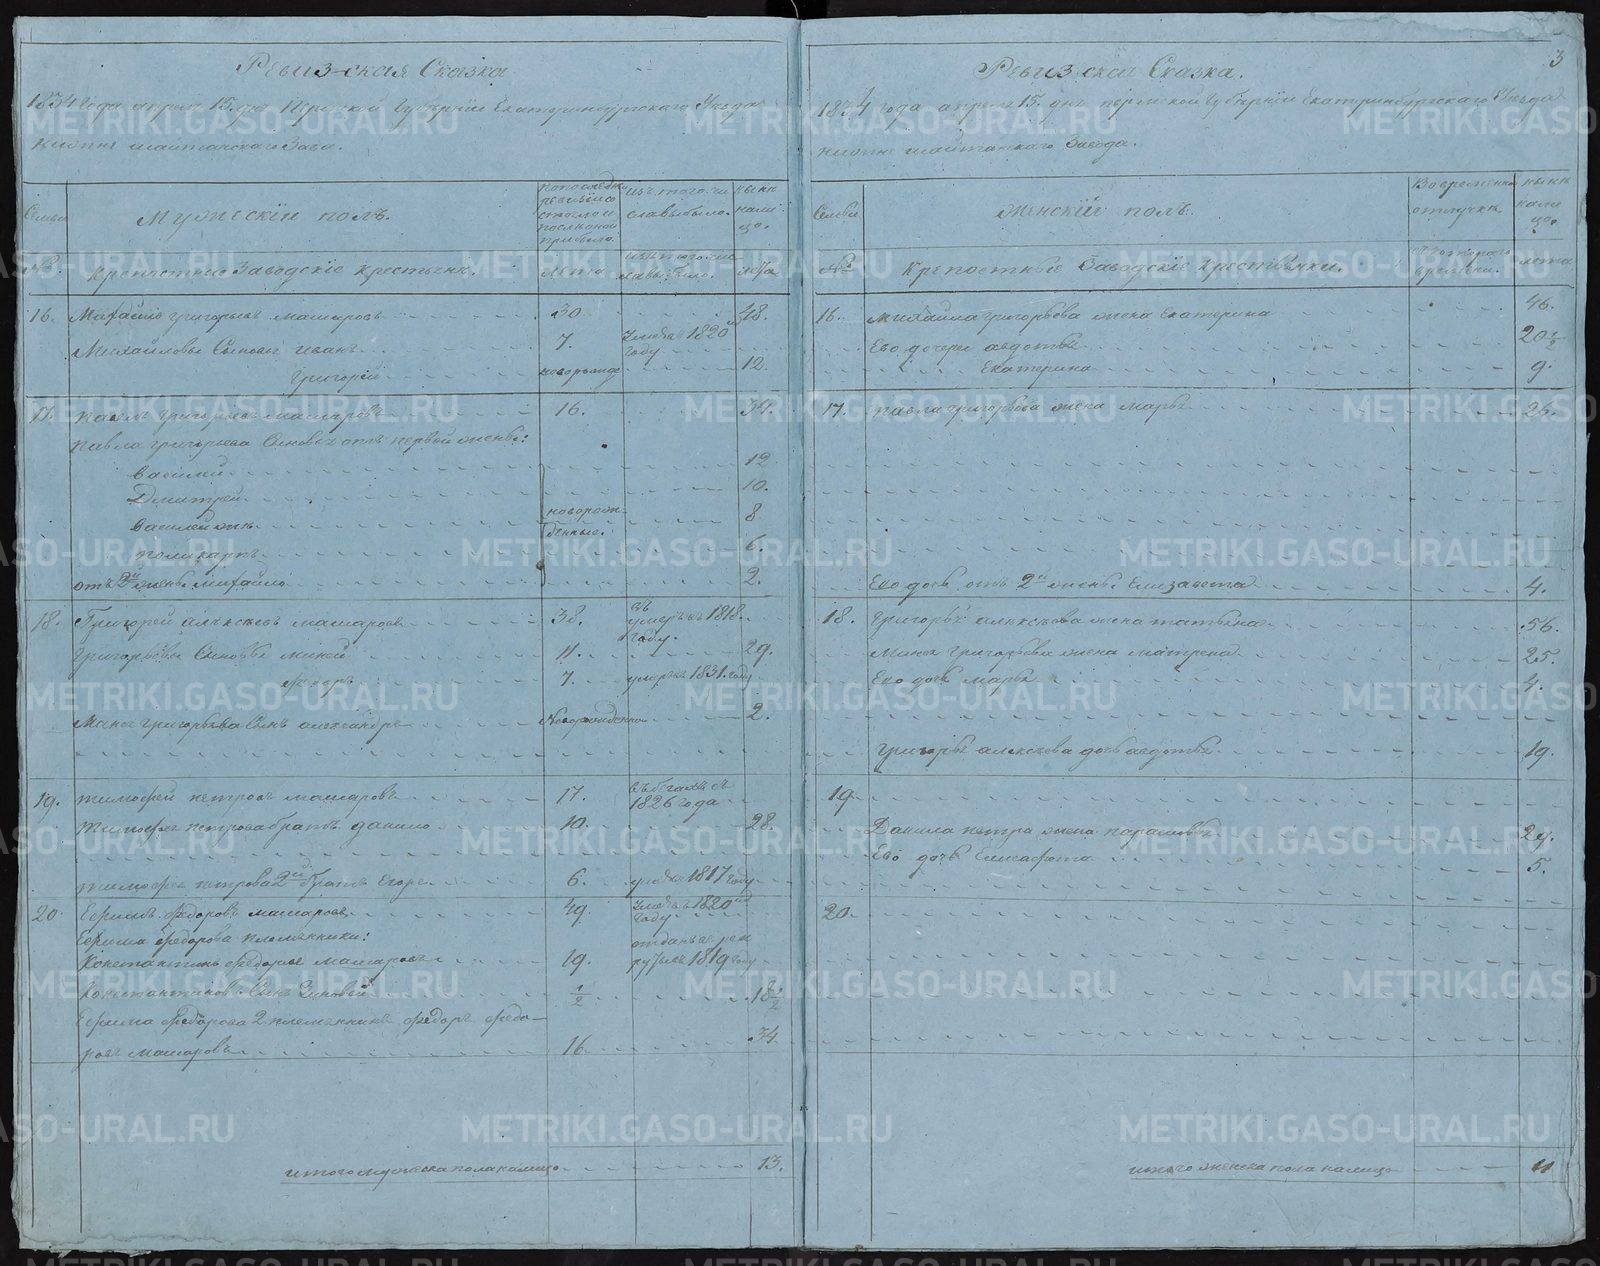 Ревизская Сказка
1834 года апреля 15. дня Пермской губернии Екатеринбургского Уезда
шайтанского Заво.
Семьи
Мужескiй полъ.
по последней ревизiи состояло и после оной прибыло.
изъ того числа выбыло.
ныне на лицо.
№
Крепостные Заводскiе крестьяне.
лета
лета
16. Михайло григорьевъ машаровъ 30. 48.
Михайловы Сыновья иванъ 7. 1820 году
григорей новорожде 12.
17. павелъ григорьевъ машаровъ 16. 34.
павла григорьева Сыновья отъ первой жены:
василей 12
Дмитрей 10.
василей новорож- 8
денные.
поликарпъ 6.
отъ 2й жены михайло 2.
18. Григорей алексеевъ машаровъ 38. умеръ въ 1818. году.
григорьевы Сыновья миней 11. 29.
федоръ 7. умеръ 1831. году
Минея григорьева Сынъ александръ Новорожденно 2.
19. тимофей петровъ машаровъ 17. въ бегахъ съ 1826 года
тимофея петрова братъ данило 10. 28
тимофея петрова 2й братъ Егоръ 6. 1817 году
20. Ефимъ федоровъ машаровъ 49. 1820 году
Ефима федорова племянники:
Константинъ федоровъ машаровъ 19. отданъ въ рекруты въ 1819 году
Константиновъ Сынъ Зиновей ½ 18½
Ефима федорова 2 племянникъ федоръ федо-
ровъ машаровъ 16. 34.
итого мужеска пола на лицо 13.
3
Ревизская Сказка.
1834 года апреля 15. дня пермской губернiи Екатеринбургского Уезда
шайтанского Завода.
Семьи
Женскiй полъ.
Во временной отлучке
ныне на лицо.
№
Крепостные Заводскiе крестьянки.
съ которого времени.
лета
16. михайла григорьева жена Екатерина 46.
Ево дочери авдотья 20½
Екатерина 9.
17. павла григорьева жена марья 26.
Ево дочь отъ 2й жены Елизавета 4.
18. григорья алексеева жена татьяна 56.
Минея григорьева жена матрена 25.
Ево дочь марья 4.
григорья алексеева дочь авдотья 19.
19.
Данила петра жена парасковья 29.
Ево дочь 5.
20.
итого женска пола на лицо 11
METRIKI.GASO-URAL.RU